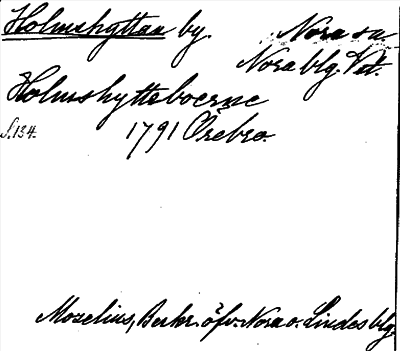 Holmshyttan by. Nora sn.
Nora blg. Vstl.
Holmshytteboerne
S. 134. 1791 Örebro.
Mozelius, Beskr. öfv. Nora o. Lindes blg.